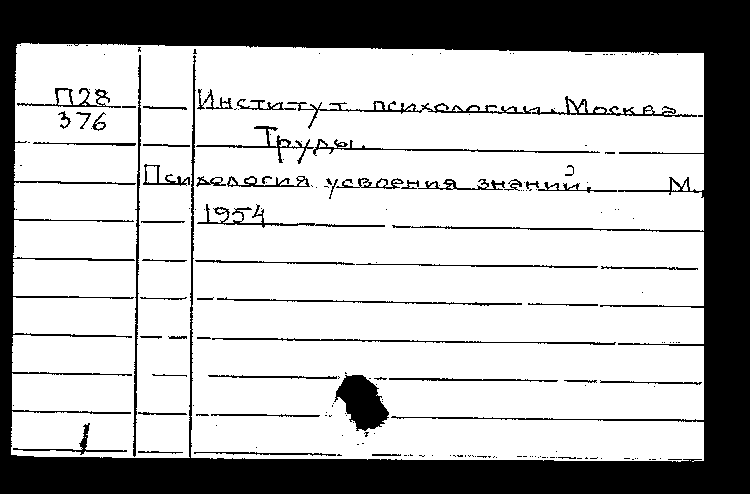 П28
376
Институт психологии. Москва
Труды.
Психология усвоения знаний. М.,
1954
1